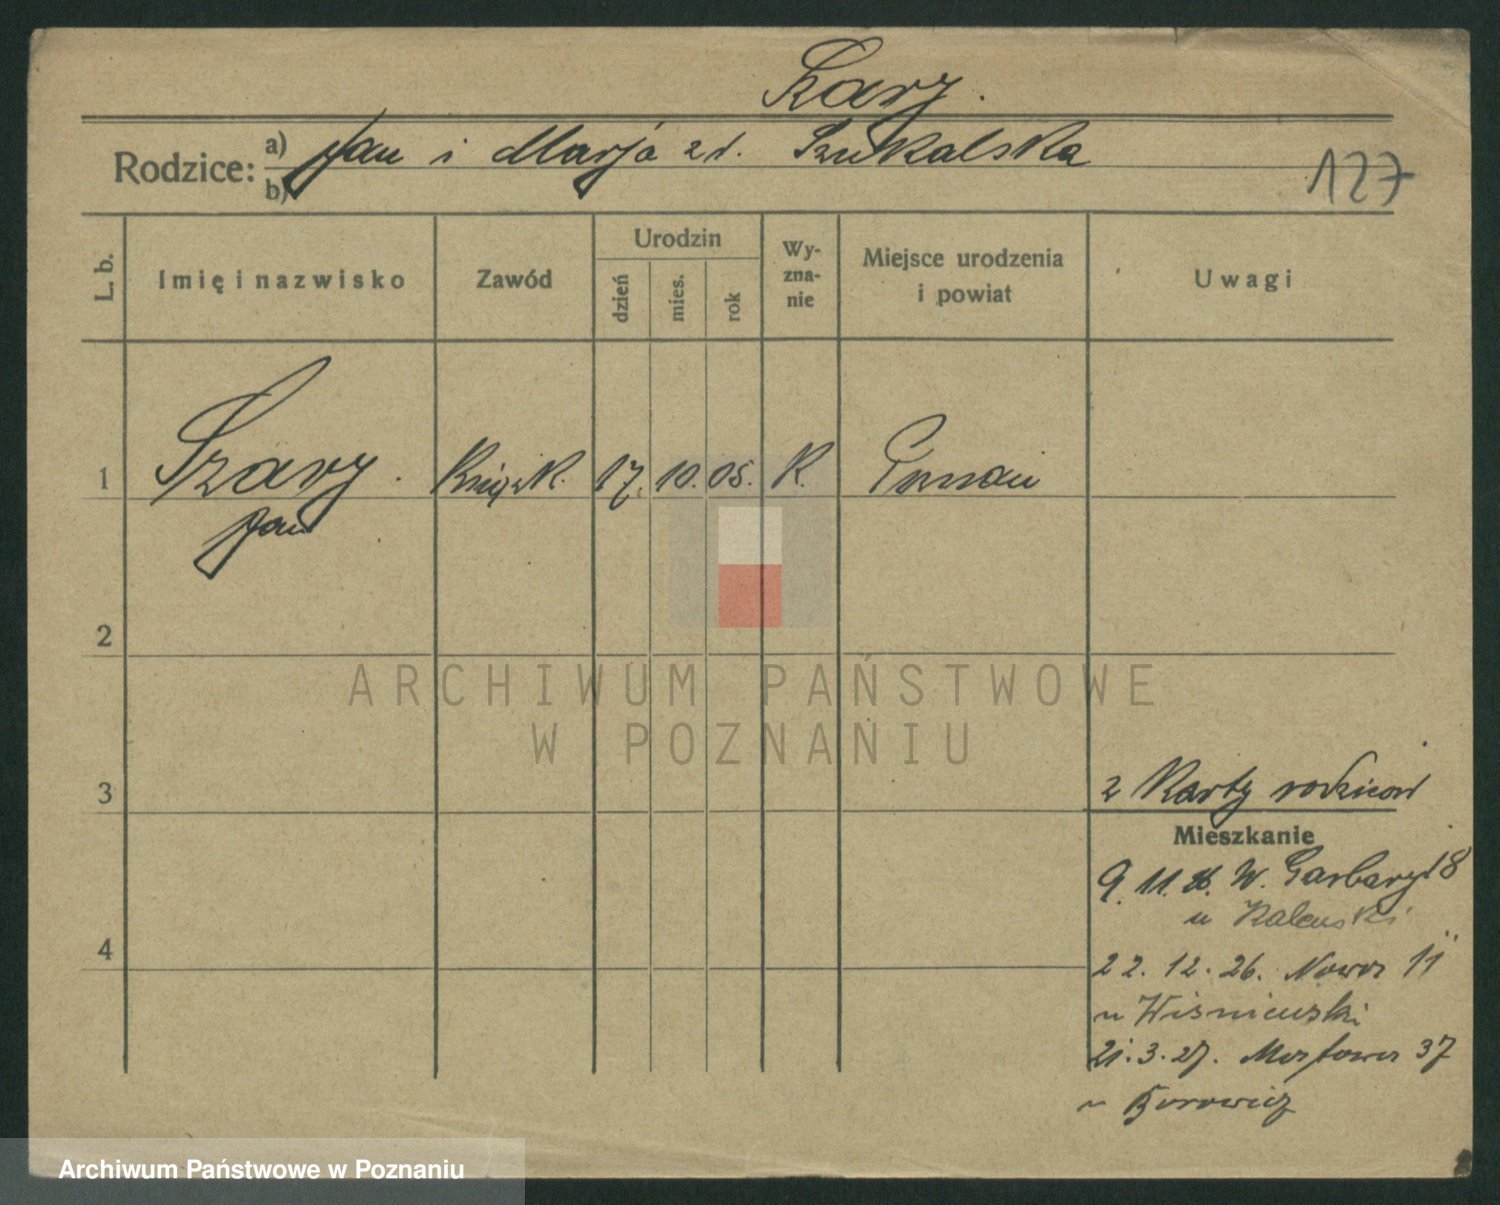 Szary.
Rodzice: a) Jan i Marja zd. Szukalska
b)
127
L. b.
Imię i nazwisko
Zawód
Urodzin
dzień
mies.
rok
Wy-
zna-
nie
Miejsce urodzenia
i powiat
Uwagi
1 Szary. 17. 10. 05. K. Poznań
Jan
2
ARCHIWUM PAŃSTWOWE
W POZNANIU
3
z Karty rodziców
Mieszkanie
9. 11. 26. W. Garbary 18
u
4
22. 12. 26. Nowa 11
u Wiśniewski
21. 3. 27. Mostowa 37
u Borowicz
Archiwum Państwowe w Poznaniu